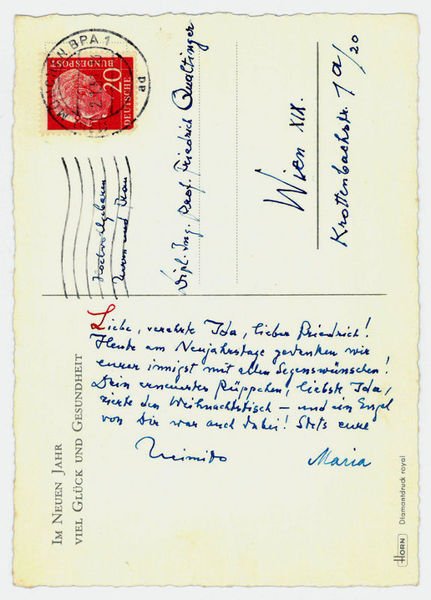 MÜNCHEN BPA 1
ad
DEUTSCHE
BUNDESPOST
20
Hochwohlgeboren
Herrn und Frau
Dipl. Ing. Prof. Friedrich Qualtinger
Wien XIX.
Krottenbachstr. 1a/20
Liebe, verehrte Ida, lieber Friedrich!
Heute am Neujahrstage gedenken wir
eurer innigst mit allen Segenswünschen!
Dein erneuertes Püppchen, liebste Ida,
zierte den Weihnachtstisch – und ein Engel
von Dir war auch dabei! Stets eure
Maria
IM NEUEN JAHR
VIEL GLÜCK UND GESUNDHEIT
HORN Diamantdruck royal